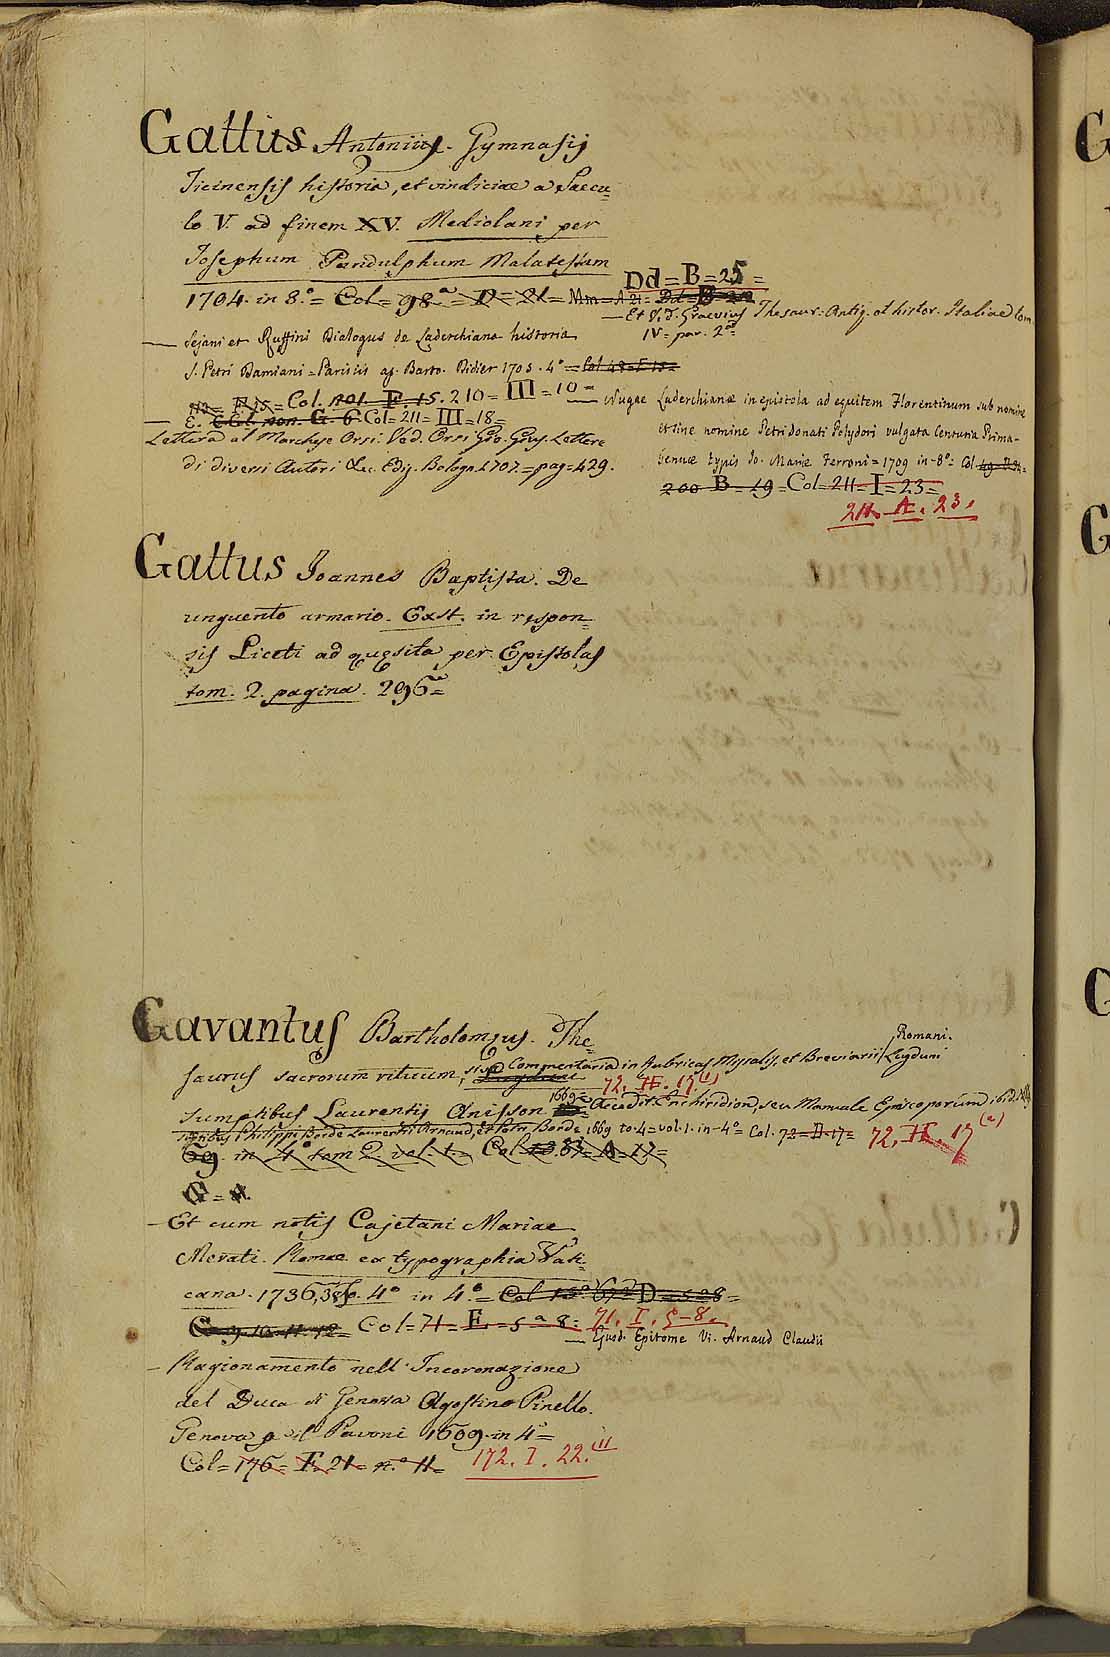 Gattius Antonius. Gymnasij
Ticinensis historia, et vindiciae a Saecu=
lo V. ad finem XV. Mediolani per
Josephum Pandulphum Malatestam
1704. in 8.º = Col = 98ª = D = 21 = Mm = A 21 = Dd = B = 20
Dd = B = 25 =
— Et V. J. Graevius Thesaur. Antiq. et histor. Italiae tom.
IV = par. 2ª =
— Sejani et Ruffini Dialogus de Laderchiana historia
S. Petri Damiani = Parisiis ap. Barto. Didier 1705. 4º = Col 48 = E 18 =
= Col. 201. E 15. 210 = III = 10 =
E. Col. G. 6 Col = 211 = III = 18 =
— Lettera al Marchese Orsi. Ved. Orsi Gio. Gius. Lettere
di diversi Autori &c. Ediz. Bologn. 1707 = pag = 429.
— Nugae Laderchianae in epistola ad equitem Florentinum sub nomine
et sine nomine Petri Donati Polydori vulgata Centuria Prima =
Genuae typis Jo. Mariae Ferroni = 1709 in - 8º = Col
200 B = 19 = Col = 211 = I = 23 =
211. A. 23.
Gattus Joannes Baptista. De
unguento armario. Exst. in respon=
sis Liceti ad quesita per Epistolas
tom. 2. pagina. 296 =
Gavantus Bartholomeus. The=
saurus sacrorum rituum, sive Commentaria in Rubricas Missalis, et Breviarii Romani. Lugduni
72. H. 17 (1)
sumptibus Laurentij Anisson 1669 = Accedit Enchiridion, seu Manuale Episcoporum ibid.
sumtibus Philippi Borde Laurentii Arnaud, et Petri Borde 1669 to. 4 = vol. 1. in - 4º = Col. 72 = D. 17 = 72. H. 17 (2)
69. in 4º tom 2. vol. 1. Col = A = 17 =
— Et cum notis Cajetani Mariae
Merati. Romae ex typographia Vati=
cana. 1736, 38 to. 4º in 4º = Col 13ª D = 5 = 28 =
9. 10. 11. 12 = Col = 71 = E = 5 a 8 = 71. I. 5-8.
— Ejusd. Epitome Vi. Arnaud Claudii
— Ragionamento nell' Incoronazione
del Duca di Genova Agostino Pinello.
Genova p il Pavoni 1609. in 4º =
Col = 176 = F. 21 = n.º 11 = 172. I. 22. 11